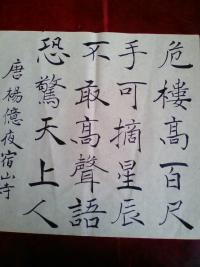 危樓高百尺
手可摘星辰
不敢高聲語
恐驚天上人
唐楊億夜宿山寺